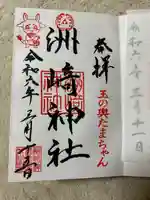 奉拝
玉の輿たまちゃん
洲崎神社
令和六年三月十一日
令和六年三月十一日